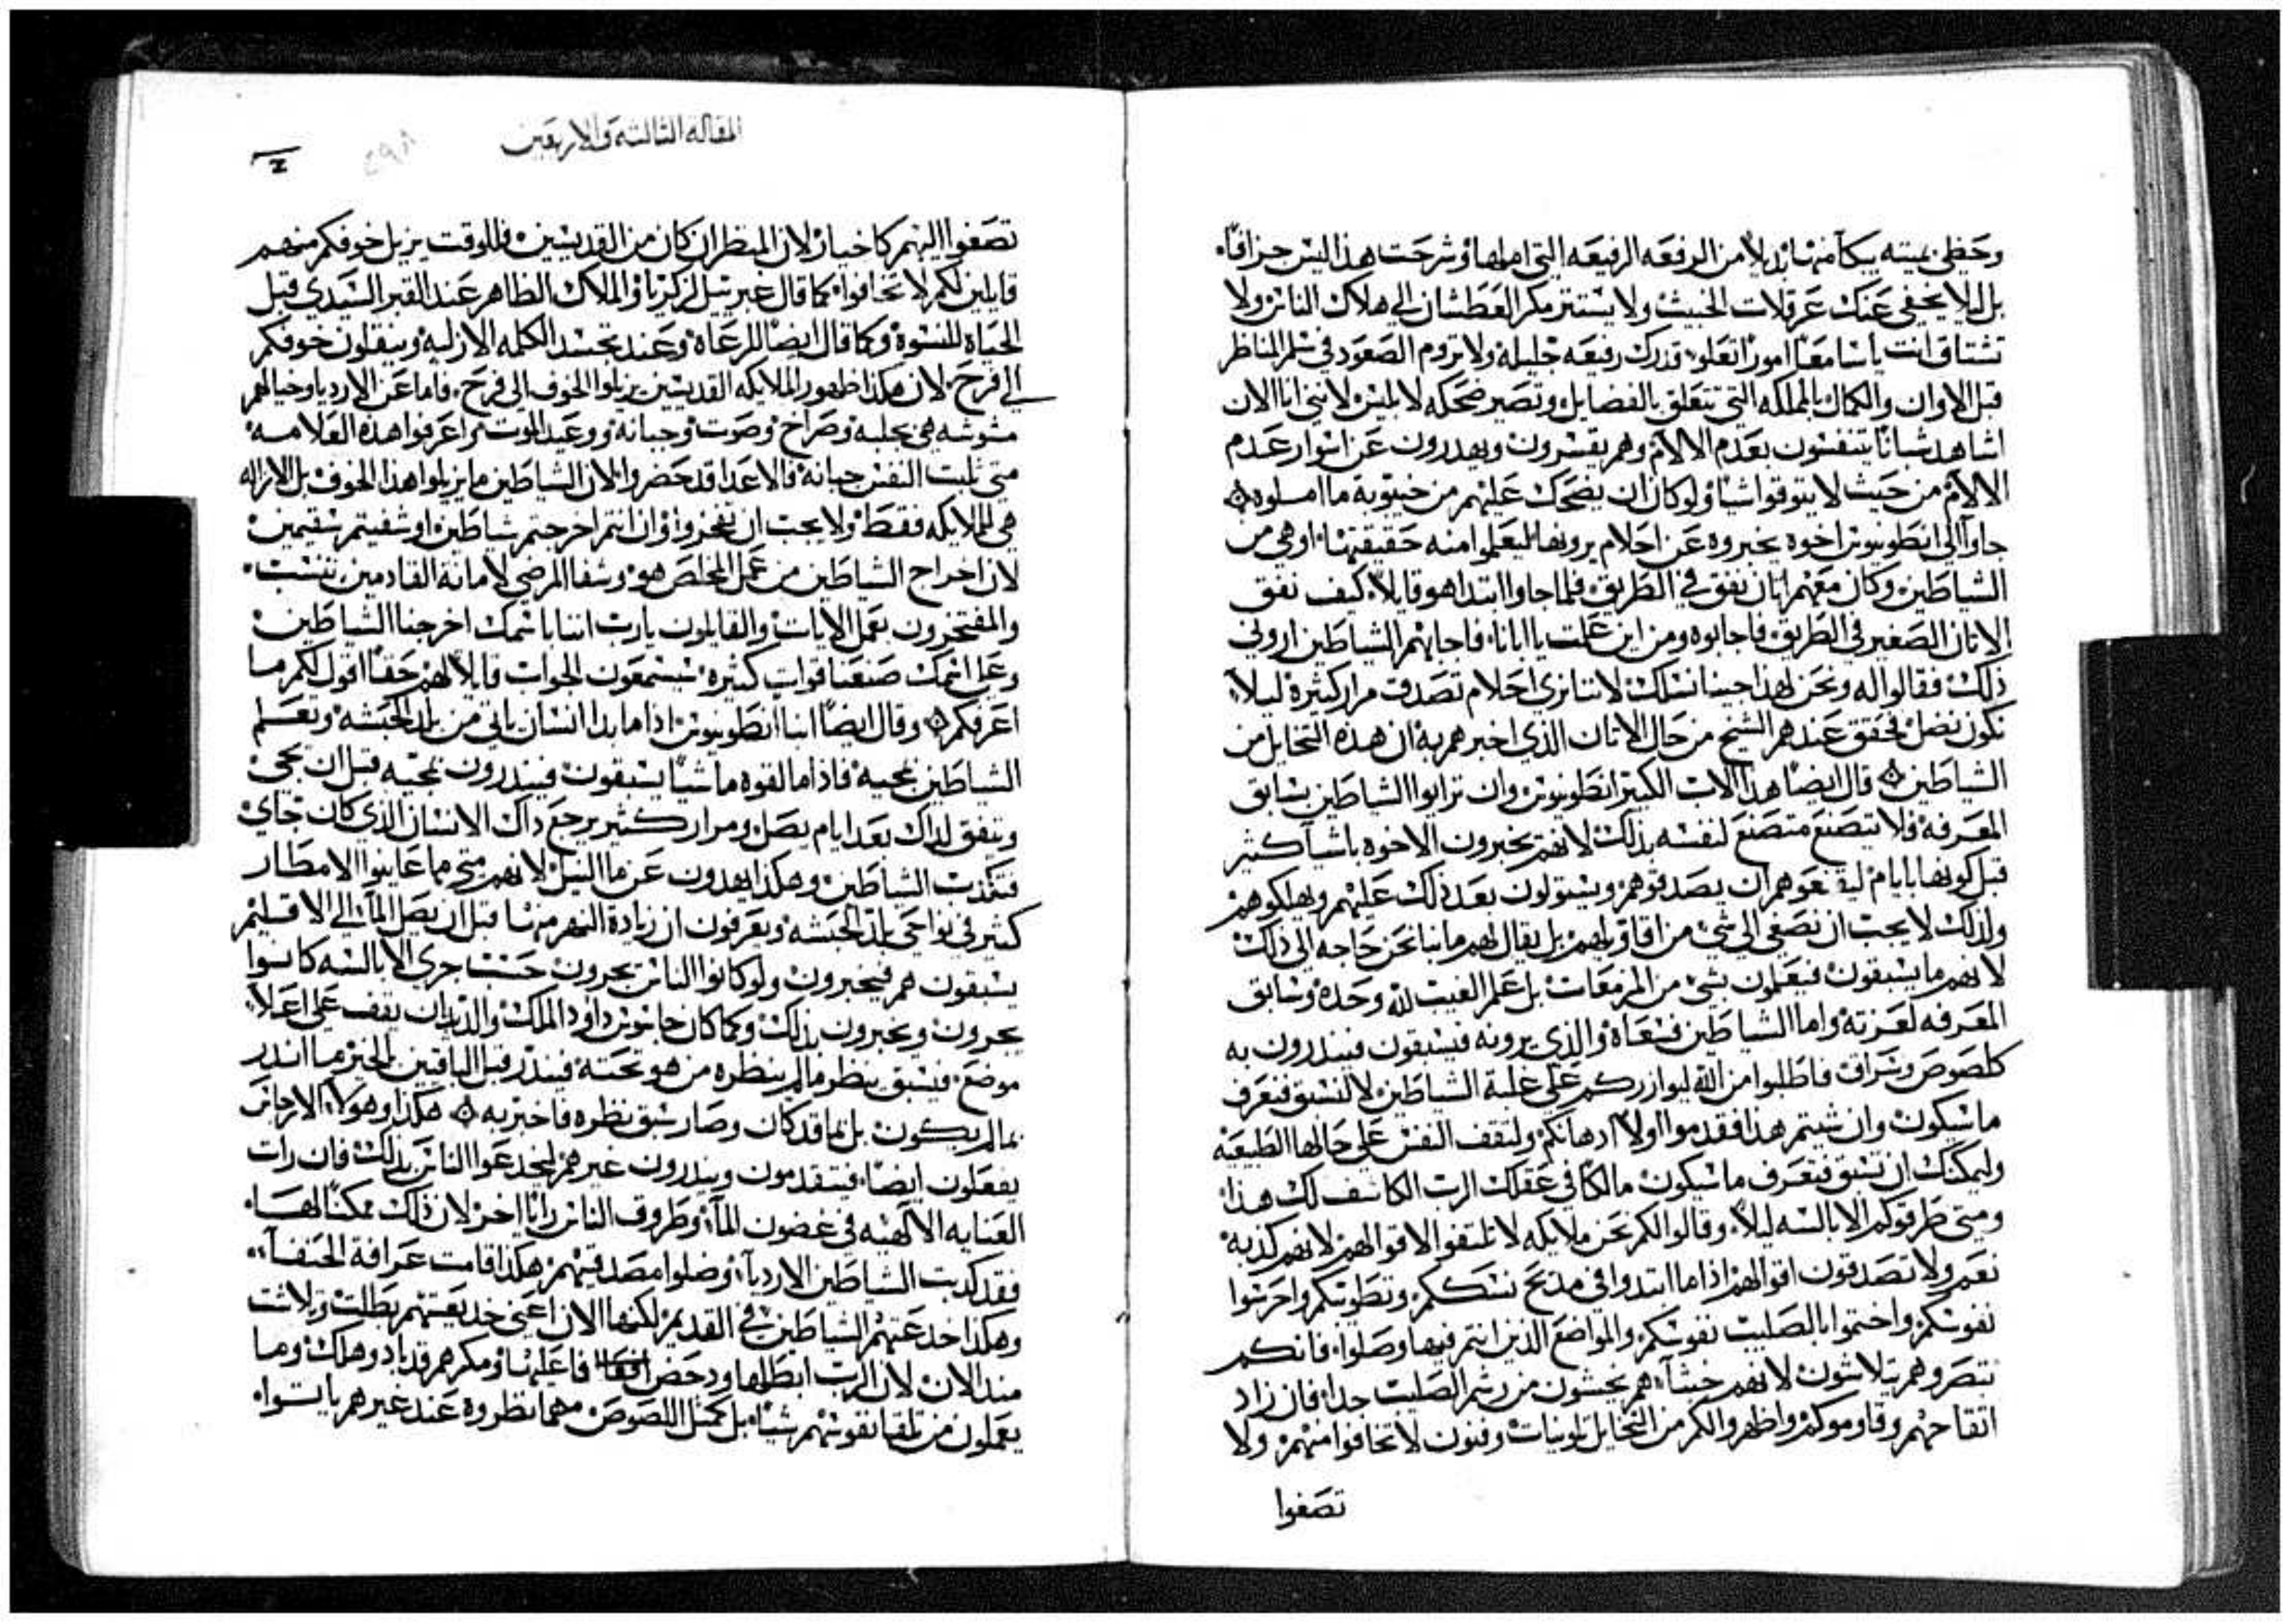 وحظي بميته يبكا منها بدلاً من الرفعه الرفيعه التي املها وشرحت هذا ليس جزافاً.
بل ليلا يخفي عنك عرقلات الخبيث ولا يستتر مكر العطشان الي هلاك الناس ولا
تشتاق انت ياسامعاً اموراً تعلو قدرك رفيعه جليله ولا تروم الصعود في سلم المناظر
قبل الاوان والكمال بالمملكه التي تتعلق بالفضايل وتصير ضحكه لابليس لانني انا الان
اشاهد شباناً يتنفسون بعدم الالام وهم يفسرون ويهدرون عن اسوار عدم
الالام من حيث لا يتوقوا شياً ولو كان ان يضحك عليهم من خيبوبة ما املوه
جاوا الي انطونيوس اخوه يخبروه عن احلام يرونها ليعلموا منه حقيقتها او هي من
الشياطين وكان معهم اتان نفق في الطريق فلما جاوا ابتدا هو قايلاً كيف نفق
الاتان الصغير في الطريق فاجابوه ومن اين علمت يا ابانا فاجابهم الشياطين اروني
ذلك فقالوا له ونحن لهذا جينا نسلك لاننا نري احلام تصدق مرار كثيرة ليلاً
نكون نضل فحقق عندهم الشيخ من حال الاتان الذي اخبرهم به ان هذه التخايل من
الشياطين قال ايضاً هذا الاب الكبير انطونيوس وان ترايوا الشياطين بسابق
المعرفه فلا يتصنع متصنع لنفسه بذلك لانهم يخبرون الاخوه باشيا كثير
قبل كونها بايام ان يصدقوهم ويستولون بعد ذلك عليهم ويهلكوهم
ولذلك لا يجب ان نصغي الي شي من اقاويلهم بل يقال لهم ما بنا نحن حاجه الي ذلك
لانهم ما يسبقون فيعلون بشي من المزمعات بل علم الغيب لله وحده وسابق
المعرفه لعزته واما الشياطين فسعاة والذي يرونه فيسبقون فينذرون به
كلصوص وسراق فاطلبوا من الله ليوازركم علي غلبة الشياطين لا لنسبق فنعرف
ما سيكون وان شيتم هذا فقدموا اولاً ادهانكم ولتقف النفس علي حالها الطبيعه
وليمكنك ان تسبق فتعرف ما سيكون مالكاً في عقلك الرب الكاشف لك هذا
ومتي طرقوكم الابالسه ليلاً وقالوا لكم نحن ملايكه لا تلتفتوا لاقوالهم لانهم كذبه
نعم ولا تصدقون اقوالهم اذا ما ابتدوا في مديح نسككم وتطوبكم واحرسوا
نفوسكم واختموا بالصليب نفوسكم والمواضع الذين انتم فيها وصلوا فانكم
تبصروهم يتلاشون لانهم خبثا هم يخشون من رشم الصليب جدا فان زاد
اتقاحهم وقاوموكم واظهروا لكم من التخايل تلوينات وفنون لا تخافوا منهم ولا
تصغوا
المقاله الثالثه والاربعين
تصغوا اليهم كاخيار لان المنظر ان كان من القديسين فللوقت يزيل خوفكم منهم
قايلين لكم لا تخافوا كما قال غبرييل لزكريا والملاك الظاهر عند القبر السيدي قبل
الحياة للنسوة وكما قال ايضاً للرعاة وعند تجسد الكلمه الازليه وينقلون خوفكم
الي فرح لان هكذا ظهور الملايكه القديسين يزيلوا الخوف الي فرح فاما عن الاردياوخيالهم
مشوشه هي بجلبه وصراخ وصوت وجبانة ووعيد الموت ثم اعرفوا هذه العلامه
متي ثبت النفس جبانة فالاعدا قد حضروا لان الشياطين ما يزيلوا هذا الخوف بل الازاله
هي للملايكه فقط ولا يجب ان تفخروا وان انتم اخرجتم شياطين او شفيتم سقيمين
لان اخراج الشياطين من عمل المخلص هو وشفا المرضي لامانة القادمين تنسب
والمفتخرون بعمل الايات والقايلون يارب اننا باسمك اخرجنا الشياطين
وعلي اسمك صنعنا قوات كثيرة سيسمعون الجواب قايلاً لهم حقاً اقول لكم ما
اعرفكم وقال ايضاً انبا انطونيوس اذا ما بدا انسان ياتي من بلد الحبشه وتعلم
الشياطين بمجيه فاذا ما لقوه ماشياً يسبقون فينذرون بمجيه قبل ان يجي
ويتفق لذاك بعد ايام يصل ومرار كثير يرجع داك الانسان الذي كان جاي
فتكذب الشياطين وهكذا يهدون عن ما النيل لانهم متي ما عاينوا الامطار
كثير في نواحي بلد الحبشه ويعرفون ان زيادة النهر منها قبل ان يصل المآ الي الاقليم
يسبقون هم فيخبرون ولو كانوا الناس يجرون حسب جري الابالسه كانوا
يجرون ويخبرون بذلك وكما كان جاسوس داود الملك والديدبان يقف علي اعلا
موضع فيسبق ينظر ما لم ينظره من هو تحته فينذر قبل الباقين المخبر ما انذر
بما لم يكون بل بما قد كان وصار سبق نظره فاخبر به هكذا وهولاء الارجاس
يفعلون ايضاً فيتقدمون وينذرون غيرهم ليخدعوا الناس بذلك فان رات
العنايه الالهيه في غضون المآ وظروف الناس راياً اخر لان ذلك ممكناً لها
فقد كدبت الشياطين الاردياً وضلوا مصدقينهم هكذا قامت عرافة الحنفآ
وهكذا خدعتهم الشياطين في القديم لكنها الان اعني خديعتهم بطلت وتلاشت
منذ الان لان الرب ابطلها ودحض فاعليها ومكرهم قد باد وهلك وما
يعملون من تلقا نفوسهم شياً بل كمثل اللصوص مهما نظروه عند غيرهم ياتوا